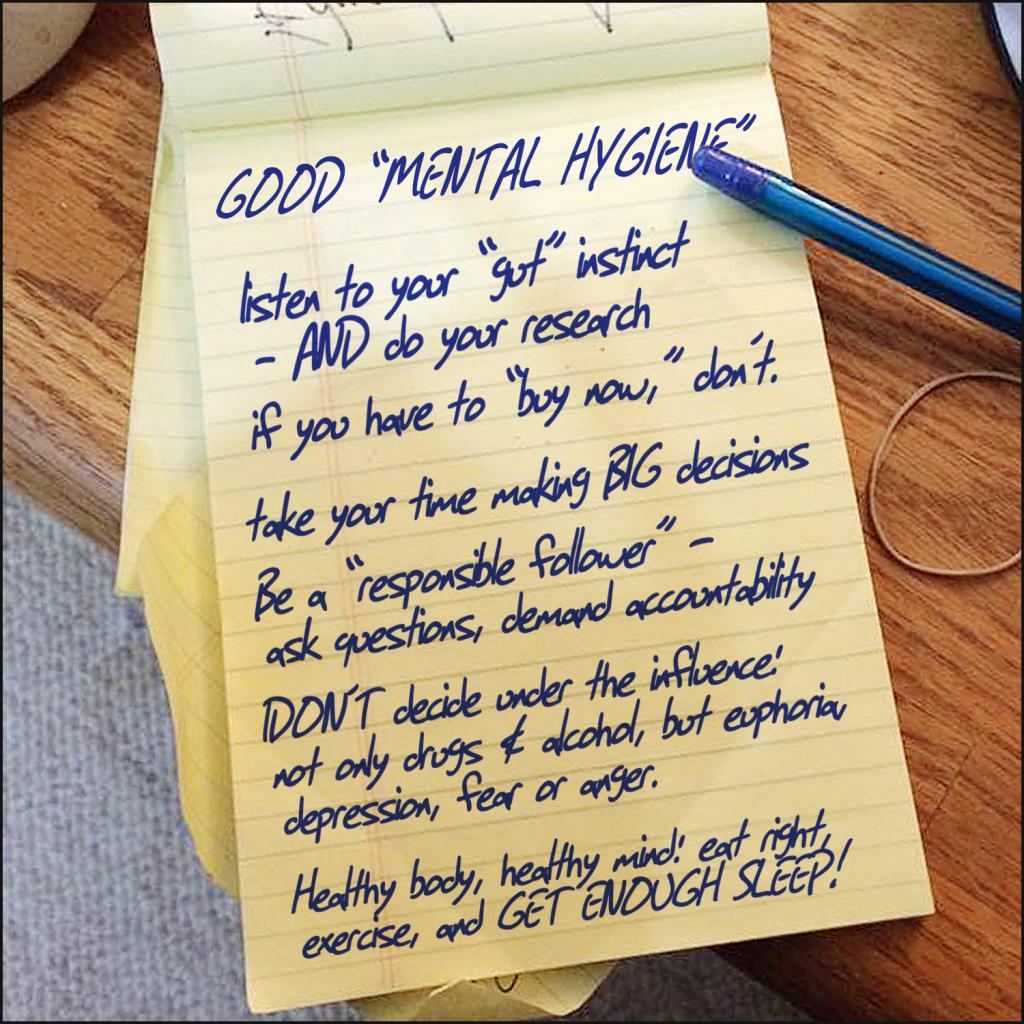 GOOD “MENTAL HYGIENE”
listen to your “gut” instinct
- AND do your research
if you have to “buy now,” don't.
take your time making BIG decisions
Be a “responsible follower” -
ask questions, demand accountability
DON'T decide under the influence!
not only drugs & alcohol, but euphoria,
depression, fear or anger.
Healthy body, healthy mind! eat right,
exercise, and GET ENOUGH SLEEP!